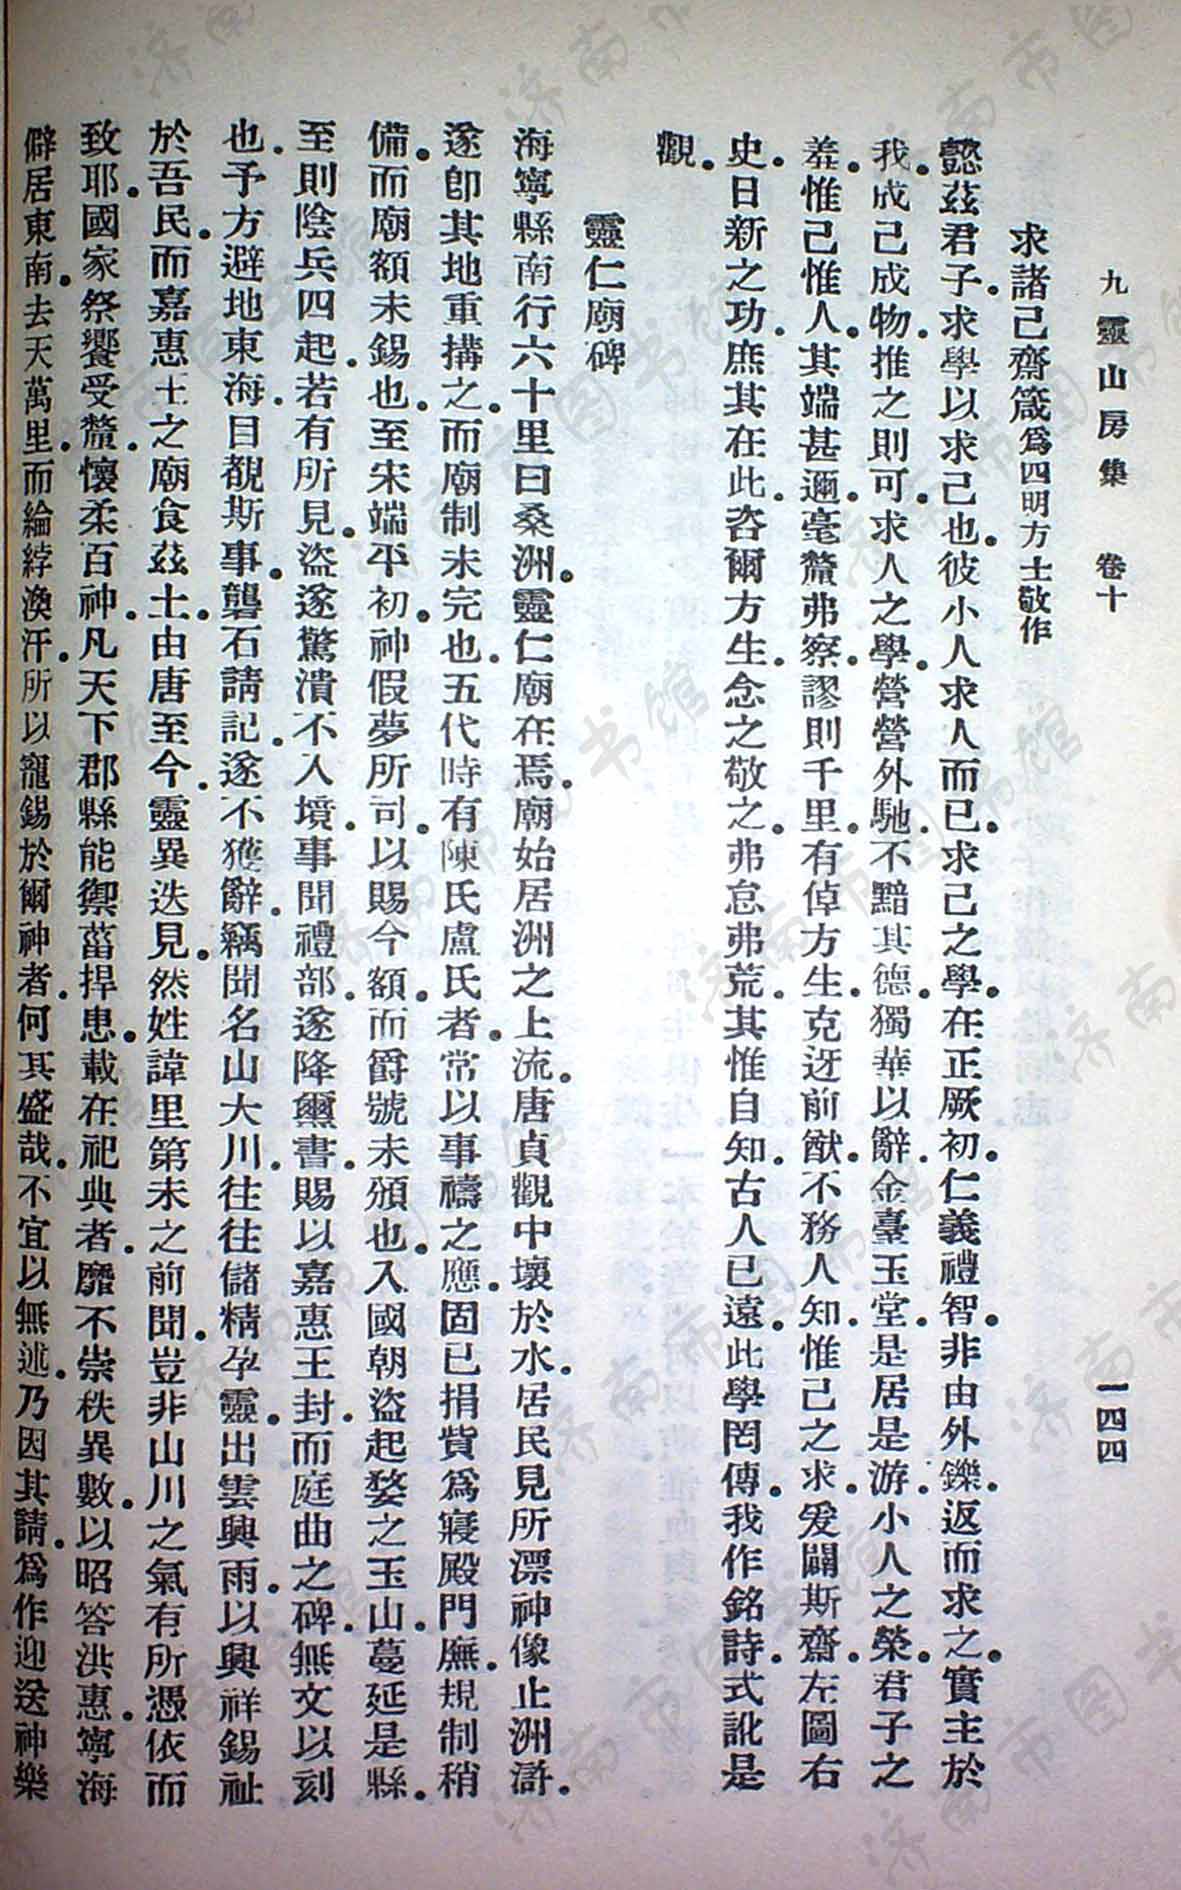 九靈山房集 卷十 一四四
求諸己齋箴爲四明方士敬作
懿茲君子。求學以求己也。彼小人求人而已。求己之學。在正厥初。仁義禮智。非由外鑠。返而求之。實主於
我。成己成物。推之則可。求人之學。營營外馳。不黯其德。獨華以辭。金臺玉堂。是居是游。小人之榮。君子之
羞。惟己惟人。其端甚邇。毫釐弗察。謬則千里。有倬方生。克迓前猷。不務人知。惟己之求。爰闢斯齋。左圖右
史。日新之功。庶其在此。咨爾方生。念之敬之。弗怠弗荒。其惟自知。古人已遠。此學罔傳。我作銘詩。式訛是
觀。
靈仁廟碑
海寧縣南行六十里曰桑洲。靈仁廟在焉。廟始居洲之上流。唐貞觀中壞於水。居民見所漂神像止洲滸。
遂卽其地重搆之。而廟制未完也。五代時有陳氏盧氏者。常以事禱之應。固已捐貲爲寢殿門廡。規制稍
備。而廟額未錫也。至宋端平初。神假夢所司。以賜今額。而爵號未頒也。入國朝盜起婺之玉山。蔓延是縣。
至則陰兵四起。若有所見。盜遂驚潰。不入境。事聞禮部。遂降璽書。賜以嘉惠王封。而庭曲之碑。無文以刻
也。予方避地東海。目覩斯事。礱石請記。遂不獲辭。竊聞名山大川。往往儲精孕靈。出雲興雨。以興祥錫祉
於吾民。而嘉惠王之廟食茲土。由唐至今。靈異迭見。然姓諱里第未之前聞。豈非山川之氣有所憑依而
致耶。國家祭饗受釐。懷柔百神。凡天下郡縣能禦菑捍患。載在祀典者。靡不崇秩異數。以昭答洪惠。寧海
僻居東南。去天萬里。而綸綍渙汗。所以寵錫於爾神者。何其盛哉。不宜以無述。乃因其請。爲作迎送神樂